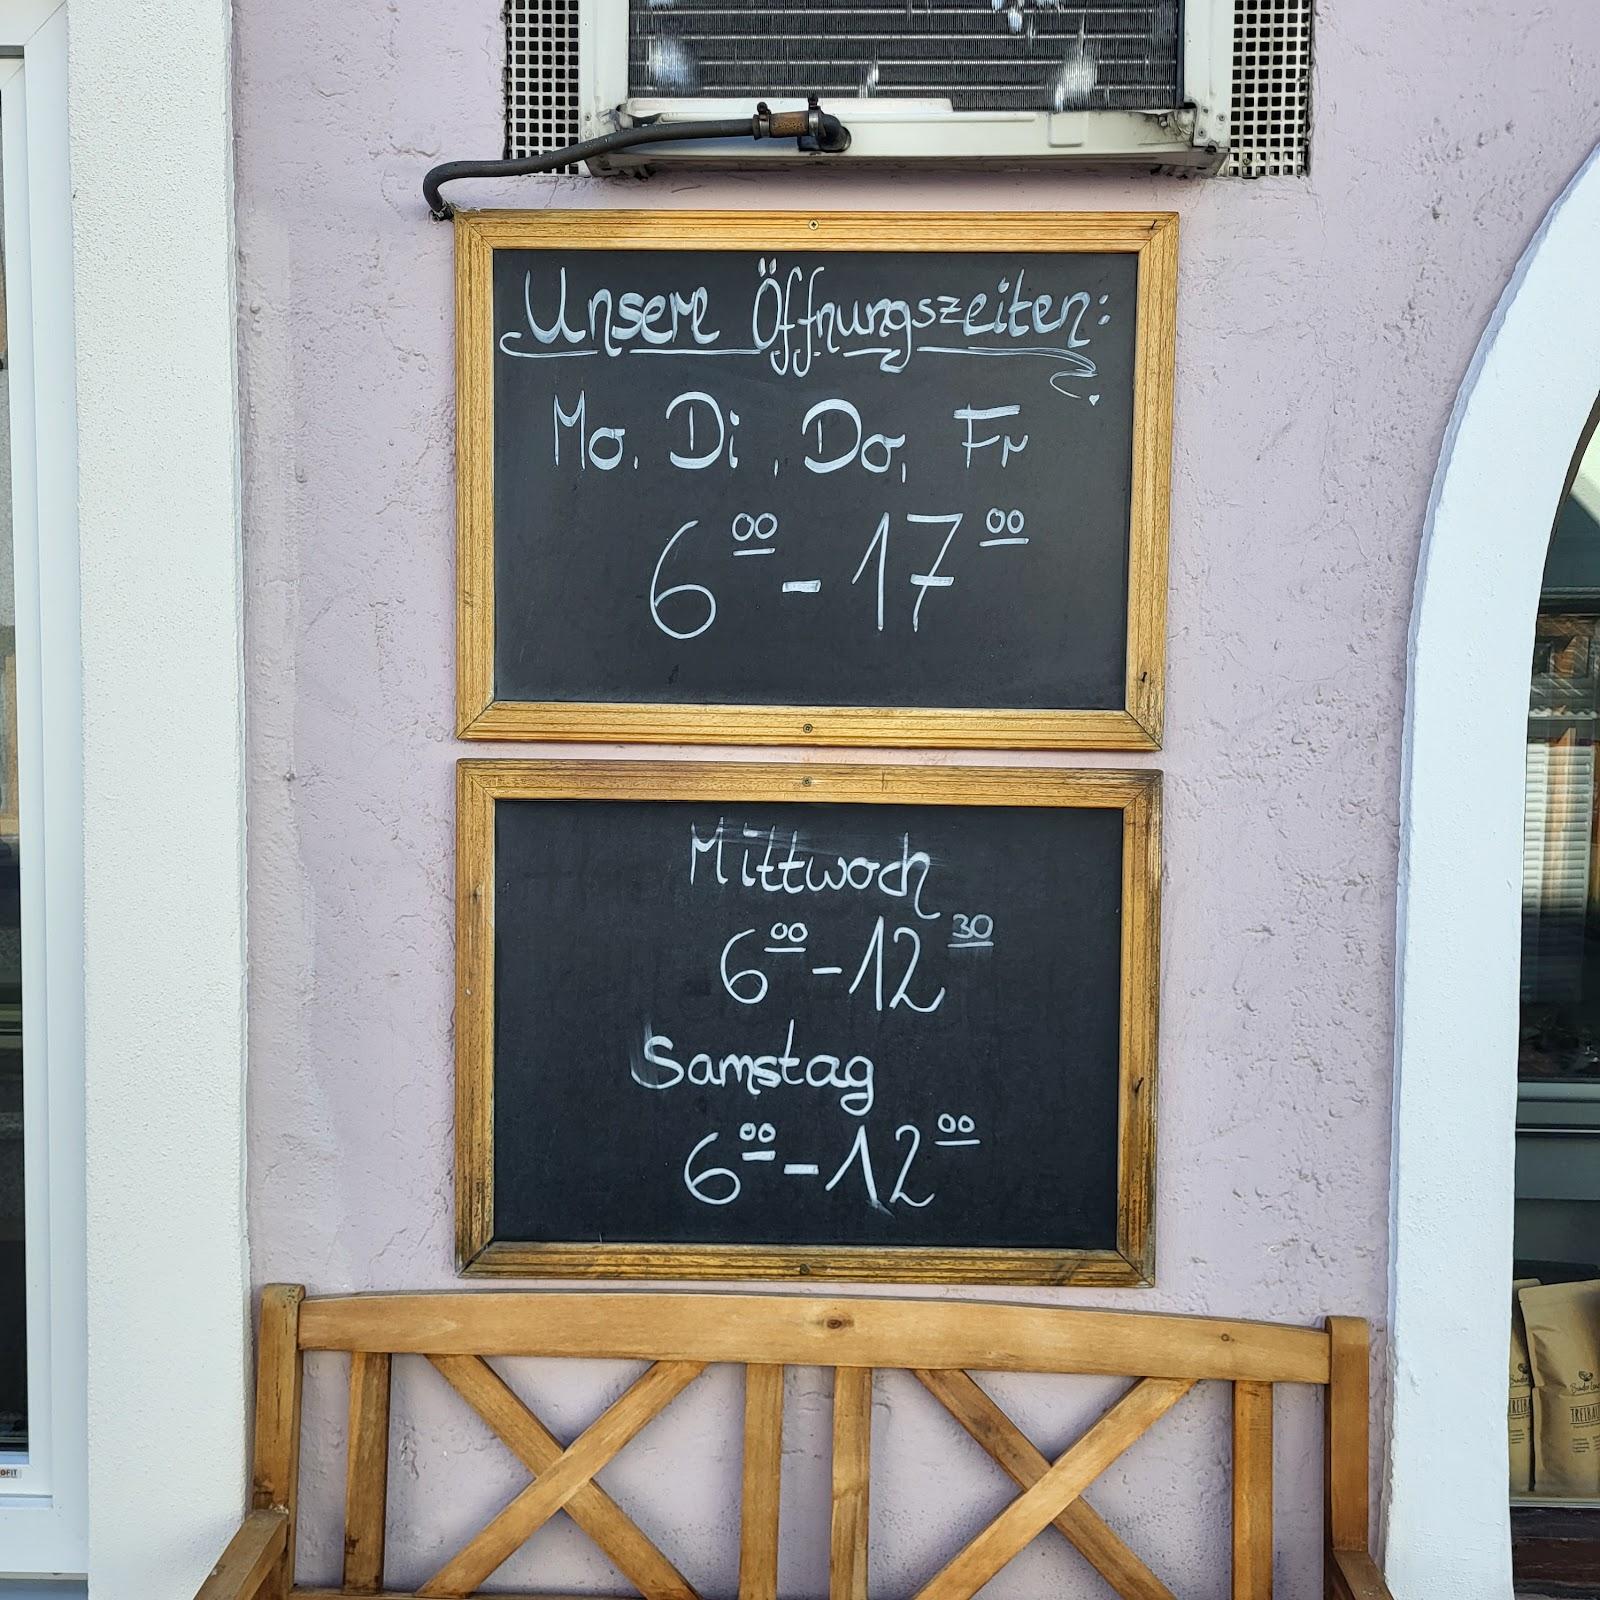 Unsere Öffnungszeiten:
Mo. Di, Do, Fr
6 00 - 17 00
Mittwoch
6 00 - 12 30
Samstag
6 00 - 12 00